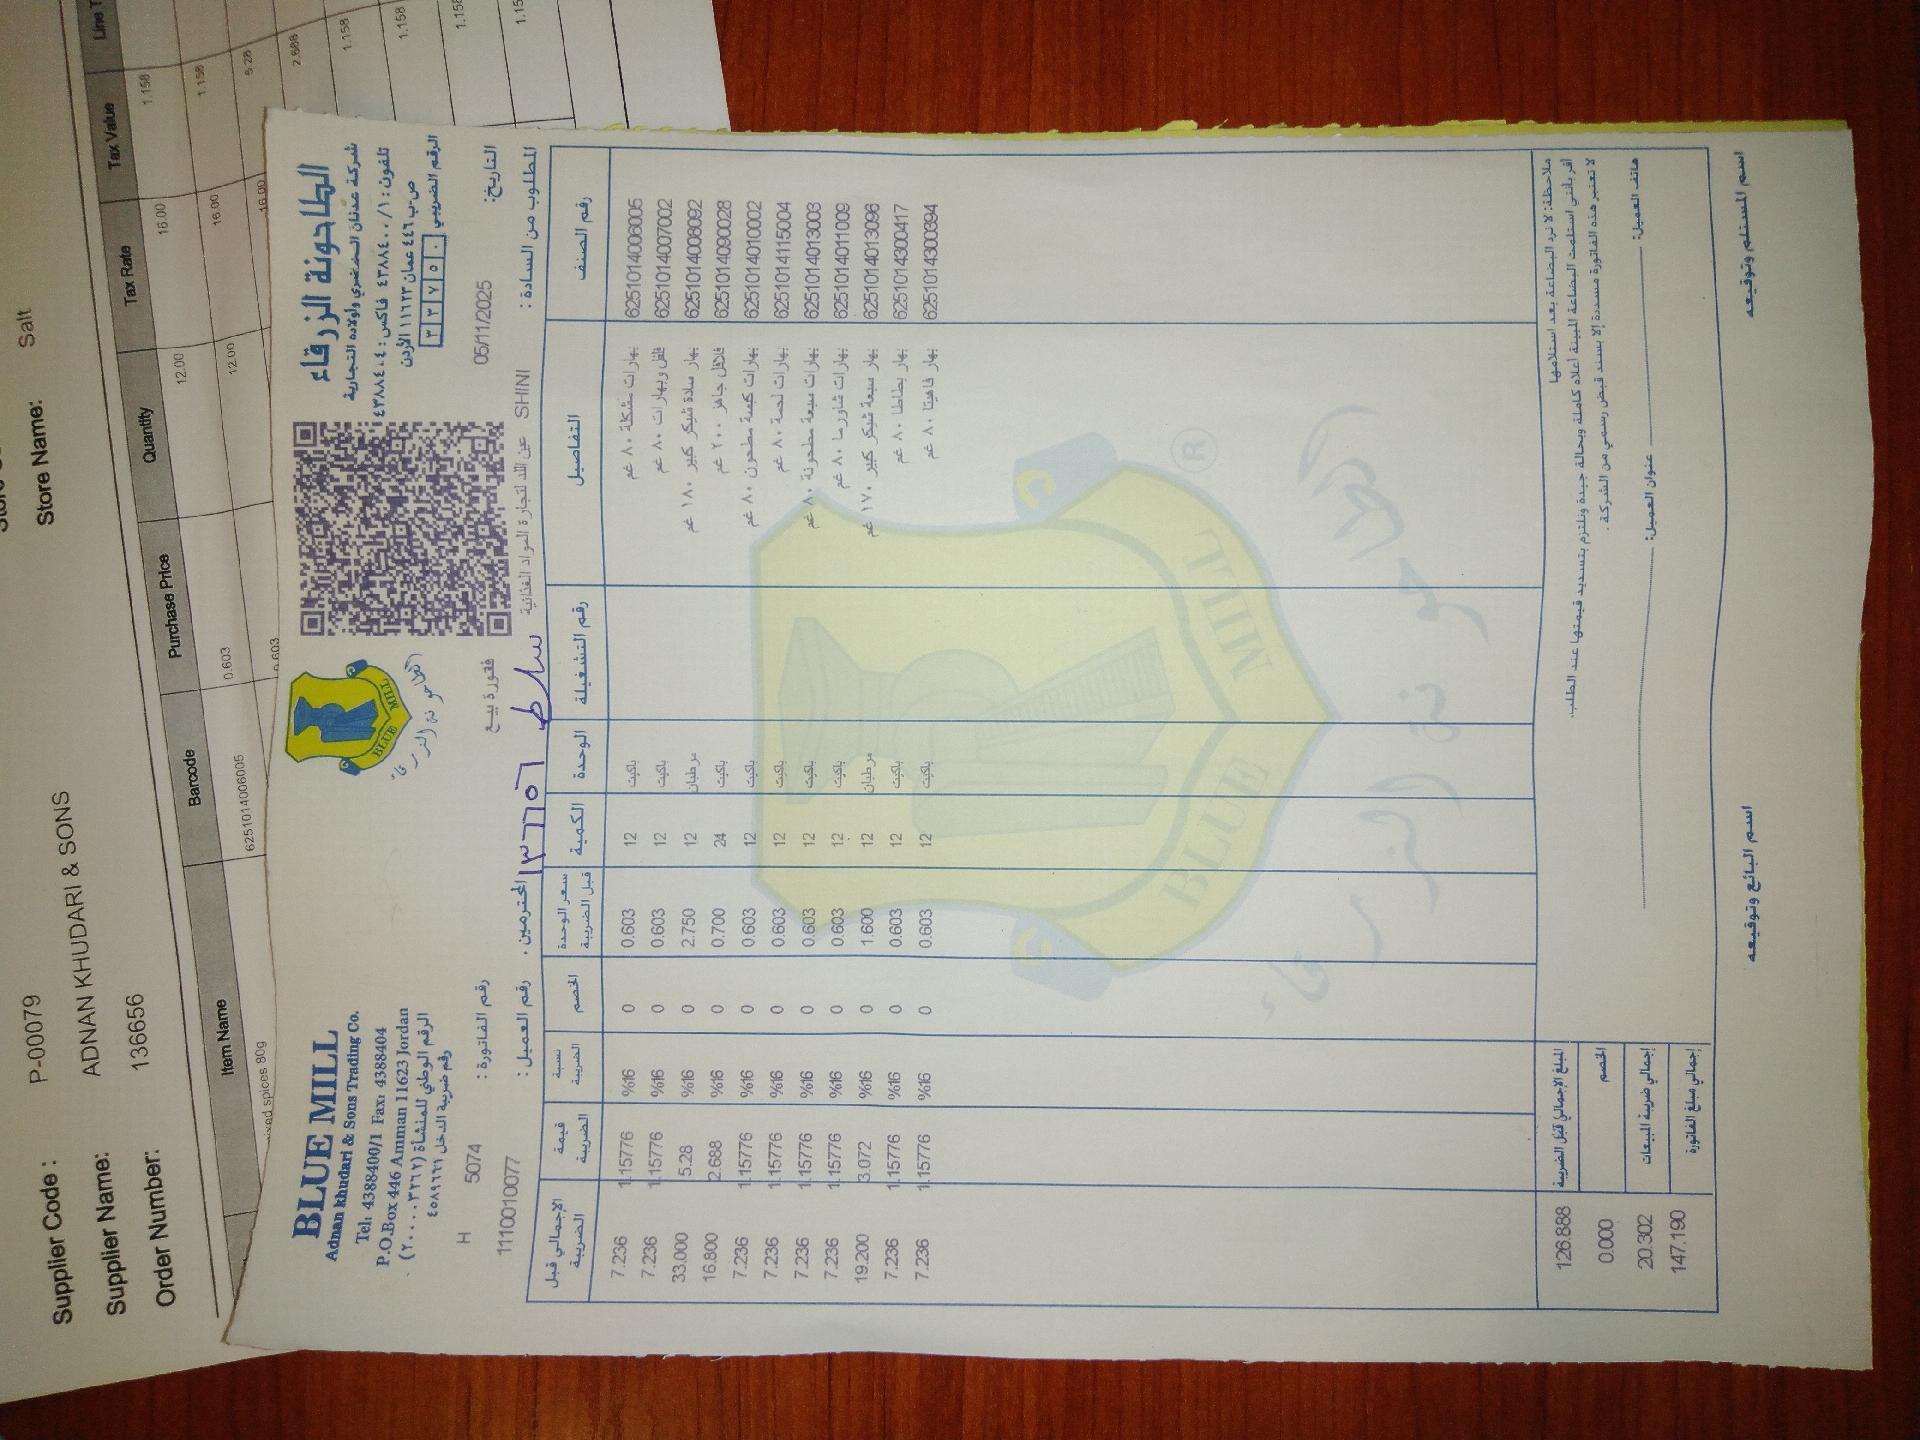 Supplier Code : P-00079
Supplier Name: ADNAN KHUDARI & SONS Store Name: Salt
Order Number: 136656
Item Name Barcode Purchase Price Quantity Tax Rate Tax Value Line T
spices 80g 6251014006005 0.603 12.00 16.00 1.158
0.603 12.00 16.00 1.158
16.00 5.28
2.688
1.158
1.158
1.158
1.15
BLUE MILL
Adnan khudari & Sons Trading Co.
Tel: 4388400/1 Fax: 4388404
P.O.Box 446 Amman 11623 Jordan
الرقم الوطني للمنشأة (٢٠٠٠٠٣٢٦٢)
رقم ضريبة الدخل ٤٥٨٩٦٦١
BLUE MILL
الطاحونة الزرقاء
الطاحونة الزرقاء
شركة عدنان الخضري واولاده التجارية
تلفون: ٤٣٨٨٤٠٠/١ فاكس: ٤٣٨٨٤٠٤
ص.ب ٤٤٦ عمان ١١٦٢٣ الأردن
الرقم الضريبي
التاريخ: 05/11/2025 فتورة بيع رقم الفاتورة : 5074 H
المطلوب من السادة : SHINI عين اللد لتجارة المواد الغذائية المحترمين . رقم العميل : 1110010077
سلط ١٣٦٦٥٦
رقم الصنف التفاصيل رقم التشغيلة الوحدة الكمية سعر الوحدة قبل الضريبة الخصم نسبة الضريبة قيمة الضريبة الإجمالي قبل الضريبة
6251014006005 بهارات مشكلة ٨٠ غم باكيت 12 0.603 0 %16 1.15776 7.236
6251014007002 فلفل وبهارات ٨٠ غم باكيت 12 0.603 0 %16 1.15776 7.236
6251014008092 بهار سادة شيكر كبير ١٨٠ غم مرطبان 12 2.750 0 %16 5.28 33.000
6251014090028 فلافل جاهز ٢٠٠ غم باكيت 24 0.700 0 %16 2.688 16.800
6251014010002 بهارات كبسة مطحون ٨٠ غم باكيت 12 0.603 0 %16 1.15776 7.236
6251014115004 بهارات لحمة ٨٠ غم باكيت 12 0.603 0 %16 1.15776 7.236
6251014013003 بهارات سبعة مطحونة ٨٠ غم باكيت 12 0.603 0 %16 1.15776 7.236
6251014011009 بهارات شاورما ٨٠ غم باكيت 12 0.603 0 %16 1.15776 7.236
6251014013096 بهار سبعة شيكر كبير ١٧٠ غم مرطبان 12 1.600 0 %16 3.072 19.200
6251014300417 بهار بطاطا ٨٠ غم باكيت 12 0.603 0 %16 1.15776 7.236
6251014300394 بهار فاهيتا ٨٠ غم باكيت 12 0.603 0 %16 1.15776 7.236
BLUE MILL ®
الطاحونة الزرقاء
ملاحظة: لا ترد البضاعة بعد استلامها
أقر بأنني استلمت البضاعة المبينة أعلاه كاملة وبحالة جيدة ونلتزم بتسديد قيمتها عند الطلب.
لا تعتبر هذه الفاتورة مسددة إلا بسند قبض رسمي من الشركة.
هاتف العميل: عنوان العميل:
المبلغ الإجمالي قبل الضريبة 126.888
الخصم 0.000
إجمالي ضريبة المبيعات 20.302
إجمالي مبلغ الفاتورة 147.190
اسم المستلم وتوقيعه اسم البائع وتوقيعه